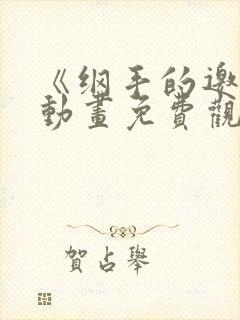 《纲手的邀
動畫免費觀
賀占舉